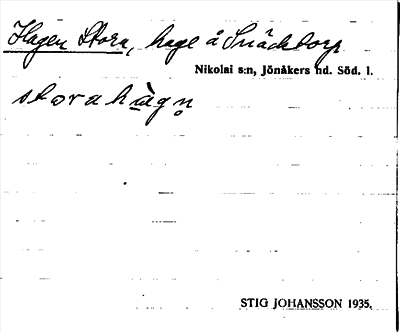 Hagen Stora, hage å Snäcktorp
Nikolai s:n, Jönåkers hd. Söd. l.
stora hàgn̥
STIG JOHANSSON 1935.